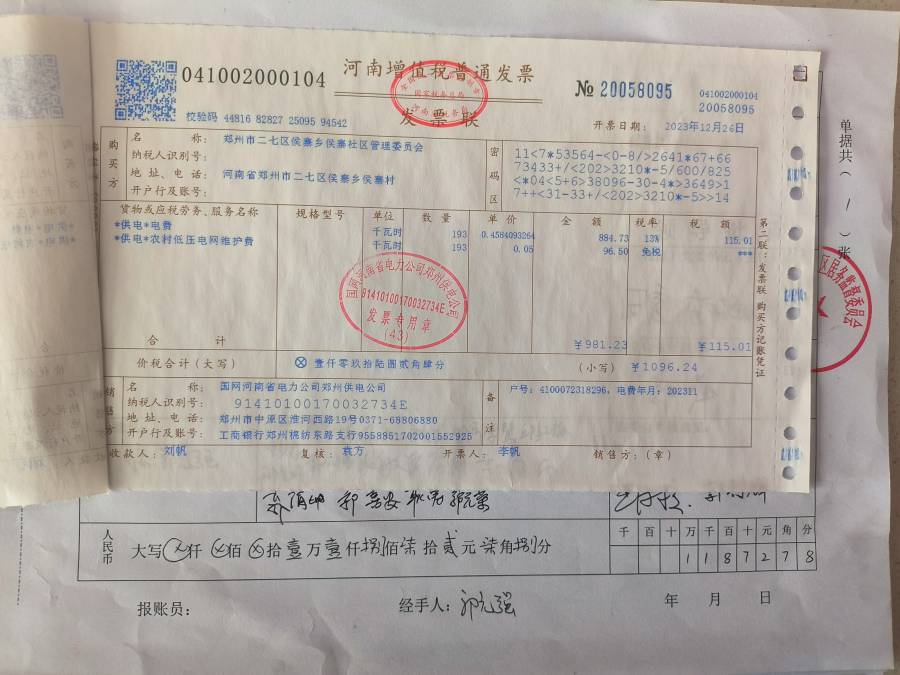 041002000104
河南增值税普通发票
发票联
№ 20058095
041002000104
20058095
校验码 44816 82827 25095 94542
开票日期: 2023年12月26日
购买方
名 称: 郑州市二七区侯寨乡侯寨社区管理委员会
纳税人识别号:
地 址、电 话: 河南省郑州市二七区侯寨乡侯寨村
开户行及账号:
密码区
11<7*53564-<0-8/>2641*67+66
73433+/<202>3210*-5/600/825
*<04<5+6>38096-30-4*>3649>1
7++<31-33+/<202>3210*-5>>14
货物或应税劳务、服务名称 规格型号 单位 数 量 单 价 金 额 税率 税 额
*供电*电费 千瓦时 193 0.4584093264 884.73 13% 115.01
*供电*农村低压电网维护费 千瓦时 193 0.05 96.50 免税 ***
国网河南省电力公司郑州供电公司
91410100170032734E
发票专用章
(43)
合 计 ¥981.23 ¥115.01
价税合计(大写) ⊗ 壹仟零玖拾陆圆贰角肆分 (小写) ¥1096.24
销售方
名 称: 国网河南省电力公司郑州供电公司
纳税人识别号: 91410100170032734E
地 址、电 话: 郑州市中原区淮河西路19号0371-68806880
开户行及账号: 工商银行郑州棉纺东路支行9558851702001552925
备注
户号: 4100072318296, 电费年月: 202311
收款人: 刘帆 复核: 袁万 开票人: 李帆 销售方: (章)
第二联: 发票联 购买方记账凭证
单据共(1)张
人民币
大写 ⊗仟 ⊗佰 ⊗拾壹万壹仟捌佰柒拾贰元柒角捌分
千 百 十 万 千 百 十 元 角 分
1 1 8 7 2 7 8
报账员: 经手人: 年 月 日